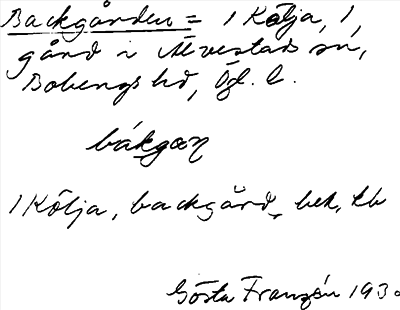 Backgården = 1 Kölja, 1
gård i Alvestads sn,
Bobergs hd, Ögl. l.
bákgæɳ
1 Kölja, backgård, bek. kb
Gösta Franzén 193